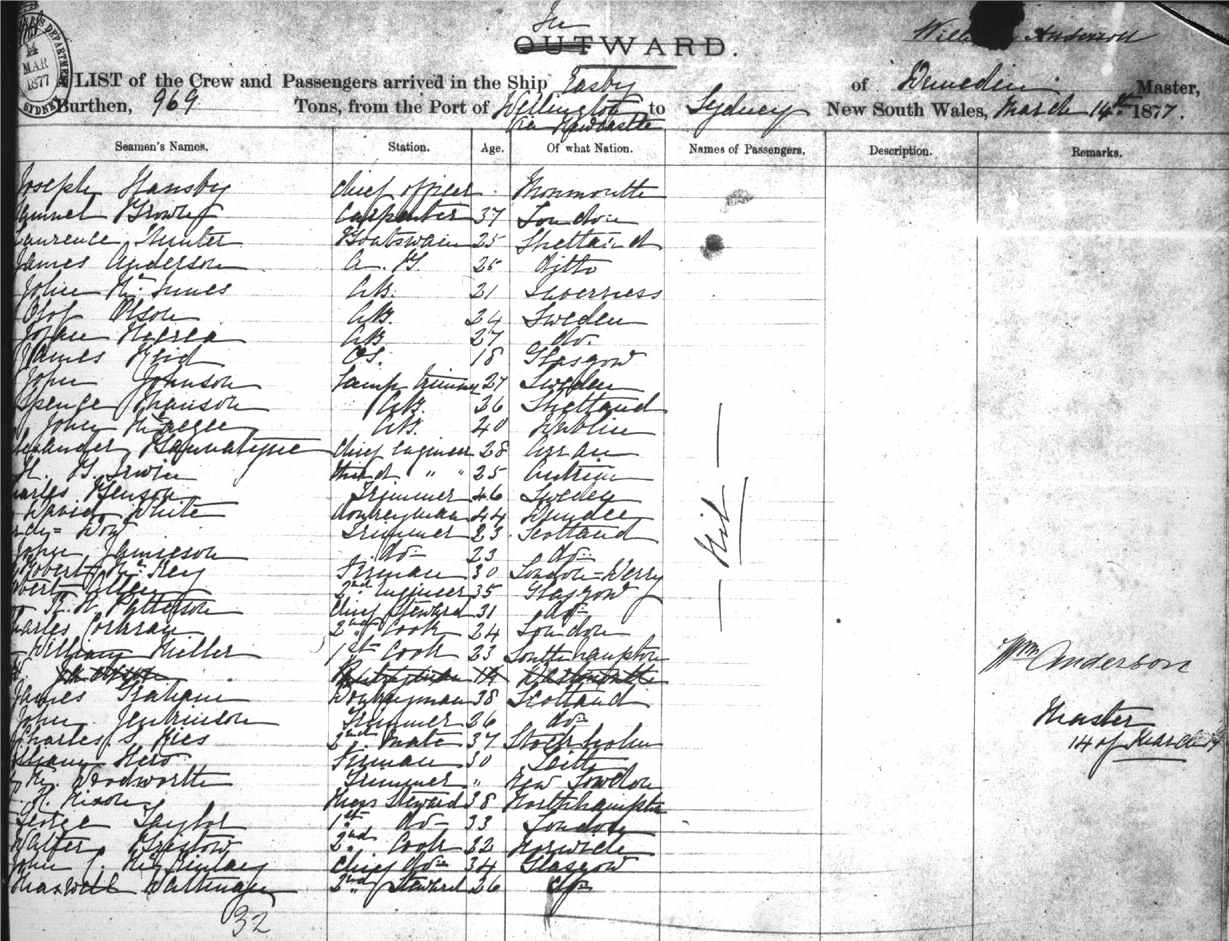 In
OUTWARD.
Anderson
MAR
1877
LIST of the Crew and Passengers arrived in the Ship Easby of Dunedin Master,
Burthen, 969 Tons, from the Port of Wellington to Sydney New South Wales, March 14th 1877.
via Newcastle
Seamen's Names. Station. Age. Of what Nation. Names of Passengers. Description. Remarks.
Joseph Hansby Chief officer Monmouth
Carpenter 37 London
Laurence Hunter Boatswain 25 Shetland
James Anderson A. B. 25 ditto
John McInnes AB. 21 Inverness
Olof Olson AB. 24 Sweden
AB 27 do
James Reid OS. 18 Glasgow
John Johnson Lamp trimmer 27 Sweden
Spence Manson AB. 26 Shetland
John McGee AB. 40 Dublin
Bannatyne Chief Engineer 28 Arran
Irwin Third " " 25 Antrim
Charles Benson Trimmer 46 Sweden
David White Donkeyman 44 Dundee
Trimmer 23 Scotland
John Jamieson do 23 do
Robert McKey Fireman 30 London=Derry
2nd Engineer 35 Glasgow
Patterson Chief Steward 31 do
Charles Cochran 2nd Cook 24 London
William Miller 1st Cook 23 Southhampton
James Graham Donkeyman 38 Scotland
John Jenkinson Trimmer 26 do
Charles S. Ries 2nd Mate 37 Stockholm
Fireman 30 Leith
Woodworth Trimmer " New London
Nixon Mess Steward 38 Northhampton
George Taylor 1st do 33 London
Walter Bristow 2nd Cook 32 Norwich
John Chief do 34 Glasgow
Maxwell 2nd Steward 26 do
32
Nil
Wm Anderson
Master
14 of March